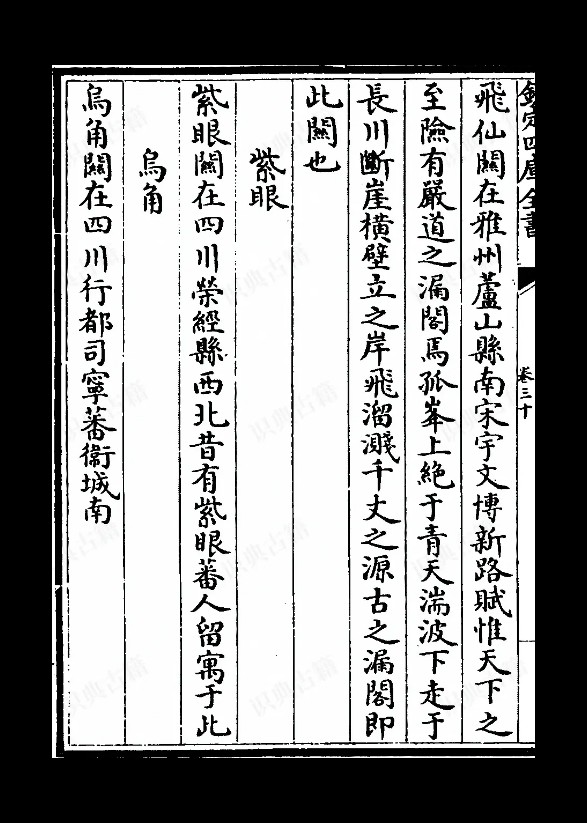 欽定四庫全書
卷三十
飛仙關在雅州蘆山縣南宋宇文博新路賦惟天下之
至險有嚴道之漏閣焉孤峯上絶于青天湍波下走于
長川斷崖橫壁立之岸飛溜濺千丈之源古之漏閣即
此關也
紫眼
紫眼關在四川榮經縣西北昔有紫眼蕃人留寓于此
烏角
烏角關在四川行都司寧蕃衞城南